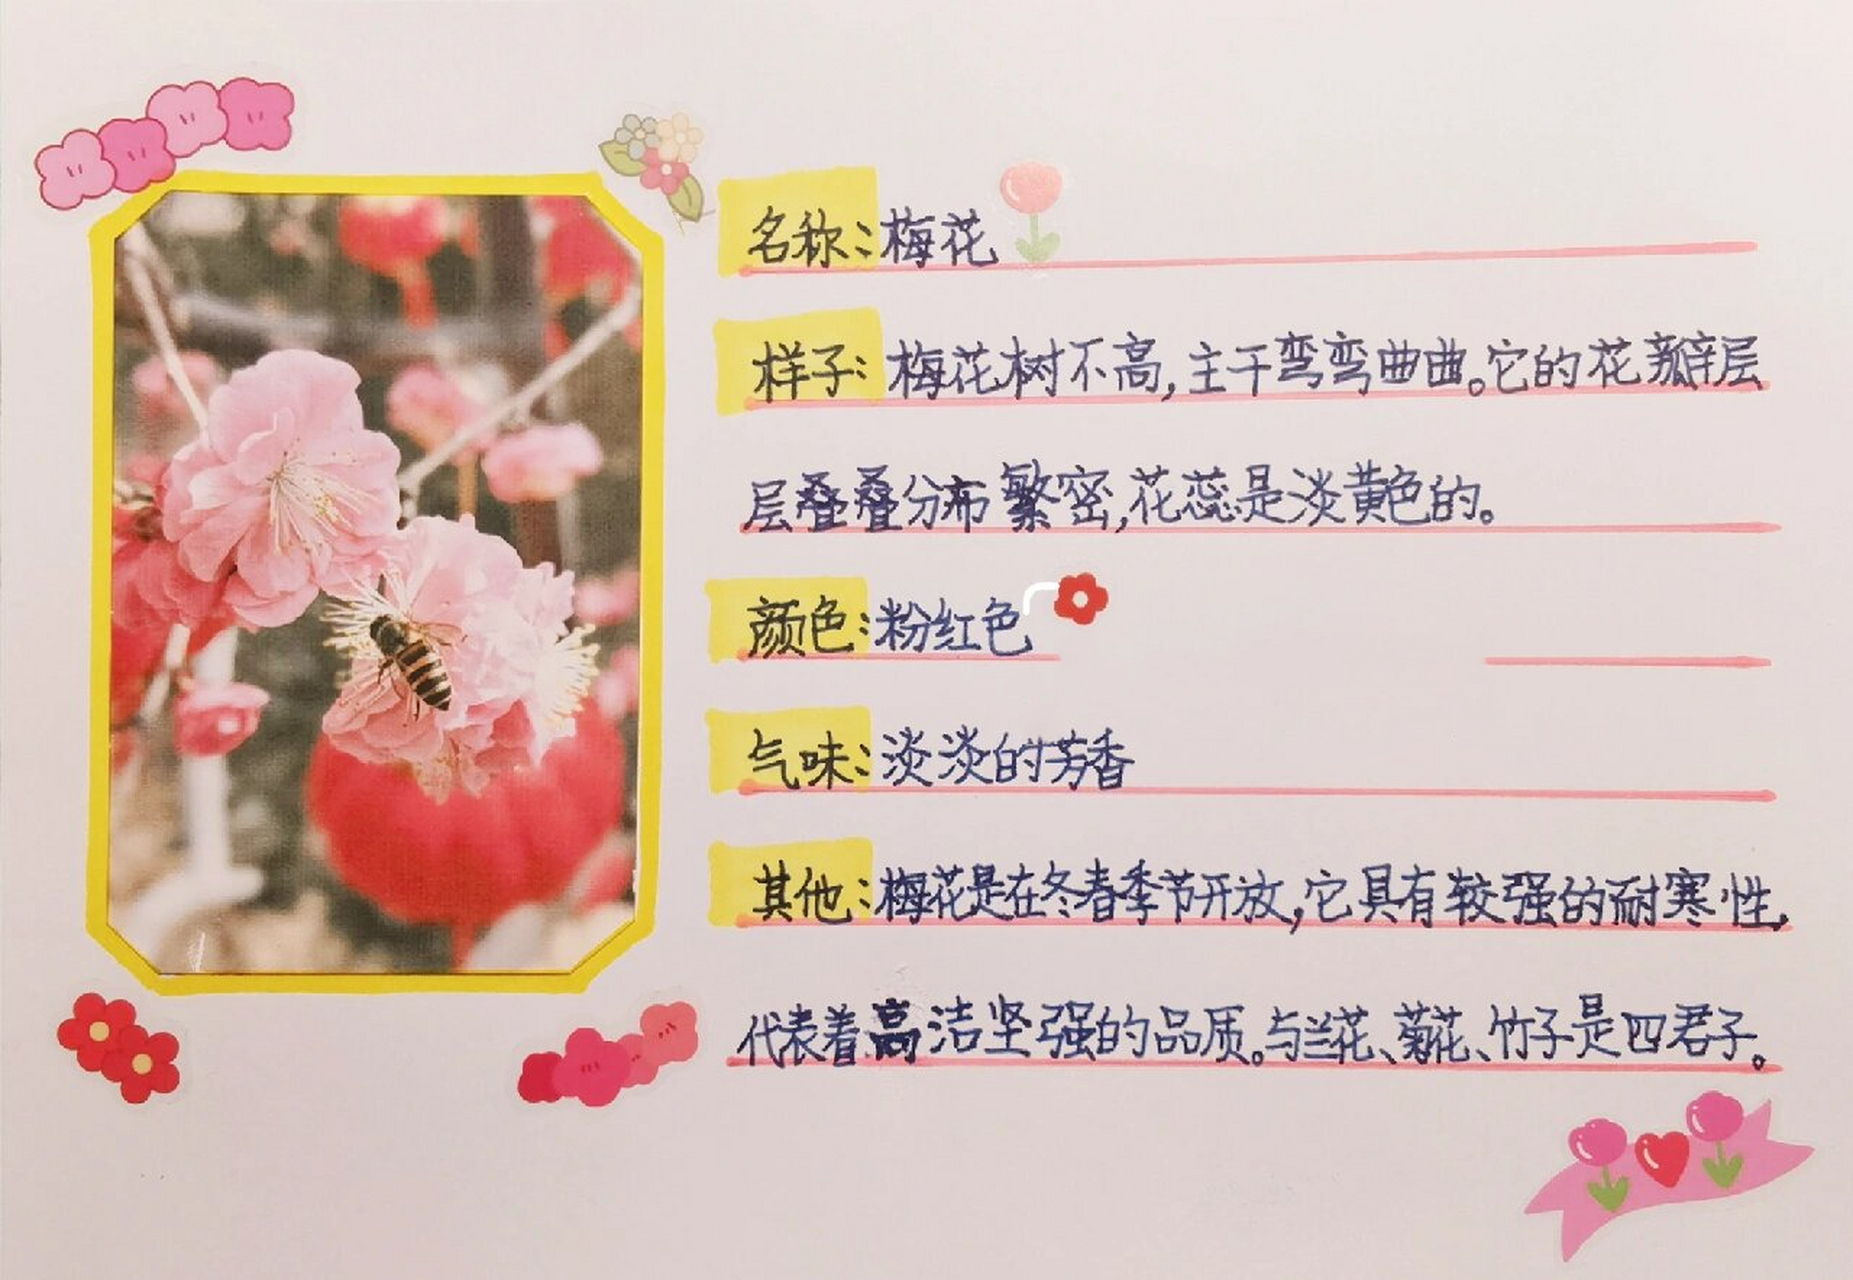 名称:梅花
样子:梅花树不高,主干弯弯曲曲。它的花瓣层
层叠叠分布繁密,花蕊是淡黄色的。
颜色:粉红色
气味:淡淡的芳香
其他:梅花是在冬春季节开放,它具有较强的耐寒性,
代表着高洁坚强的品质。与兰花、菊花、竹子是四君子。